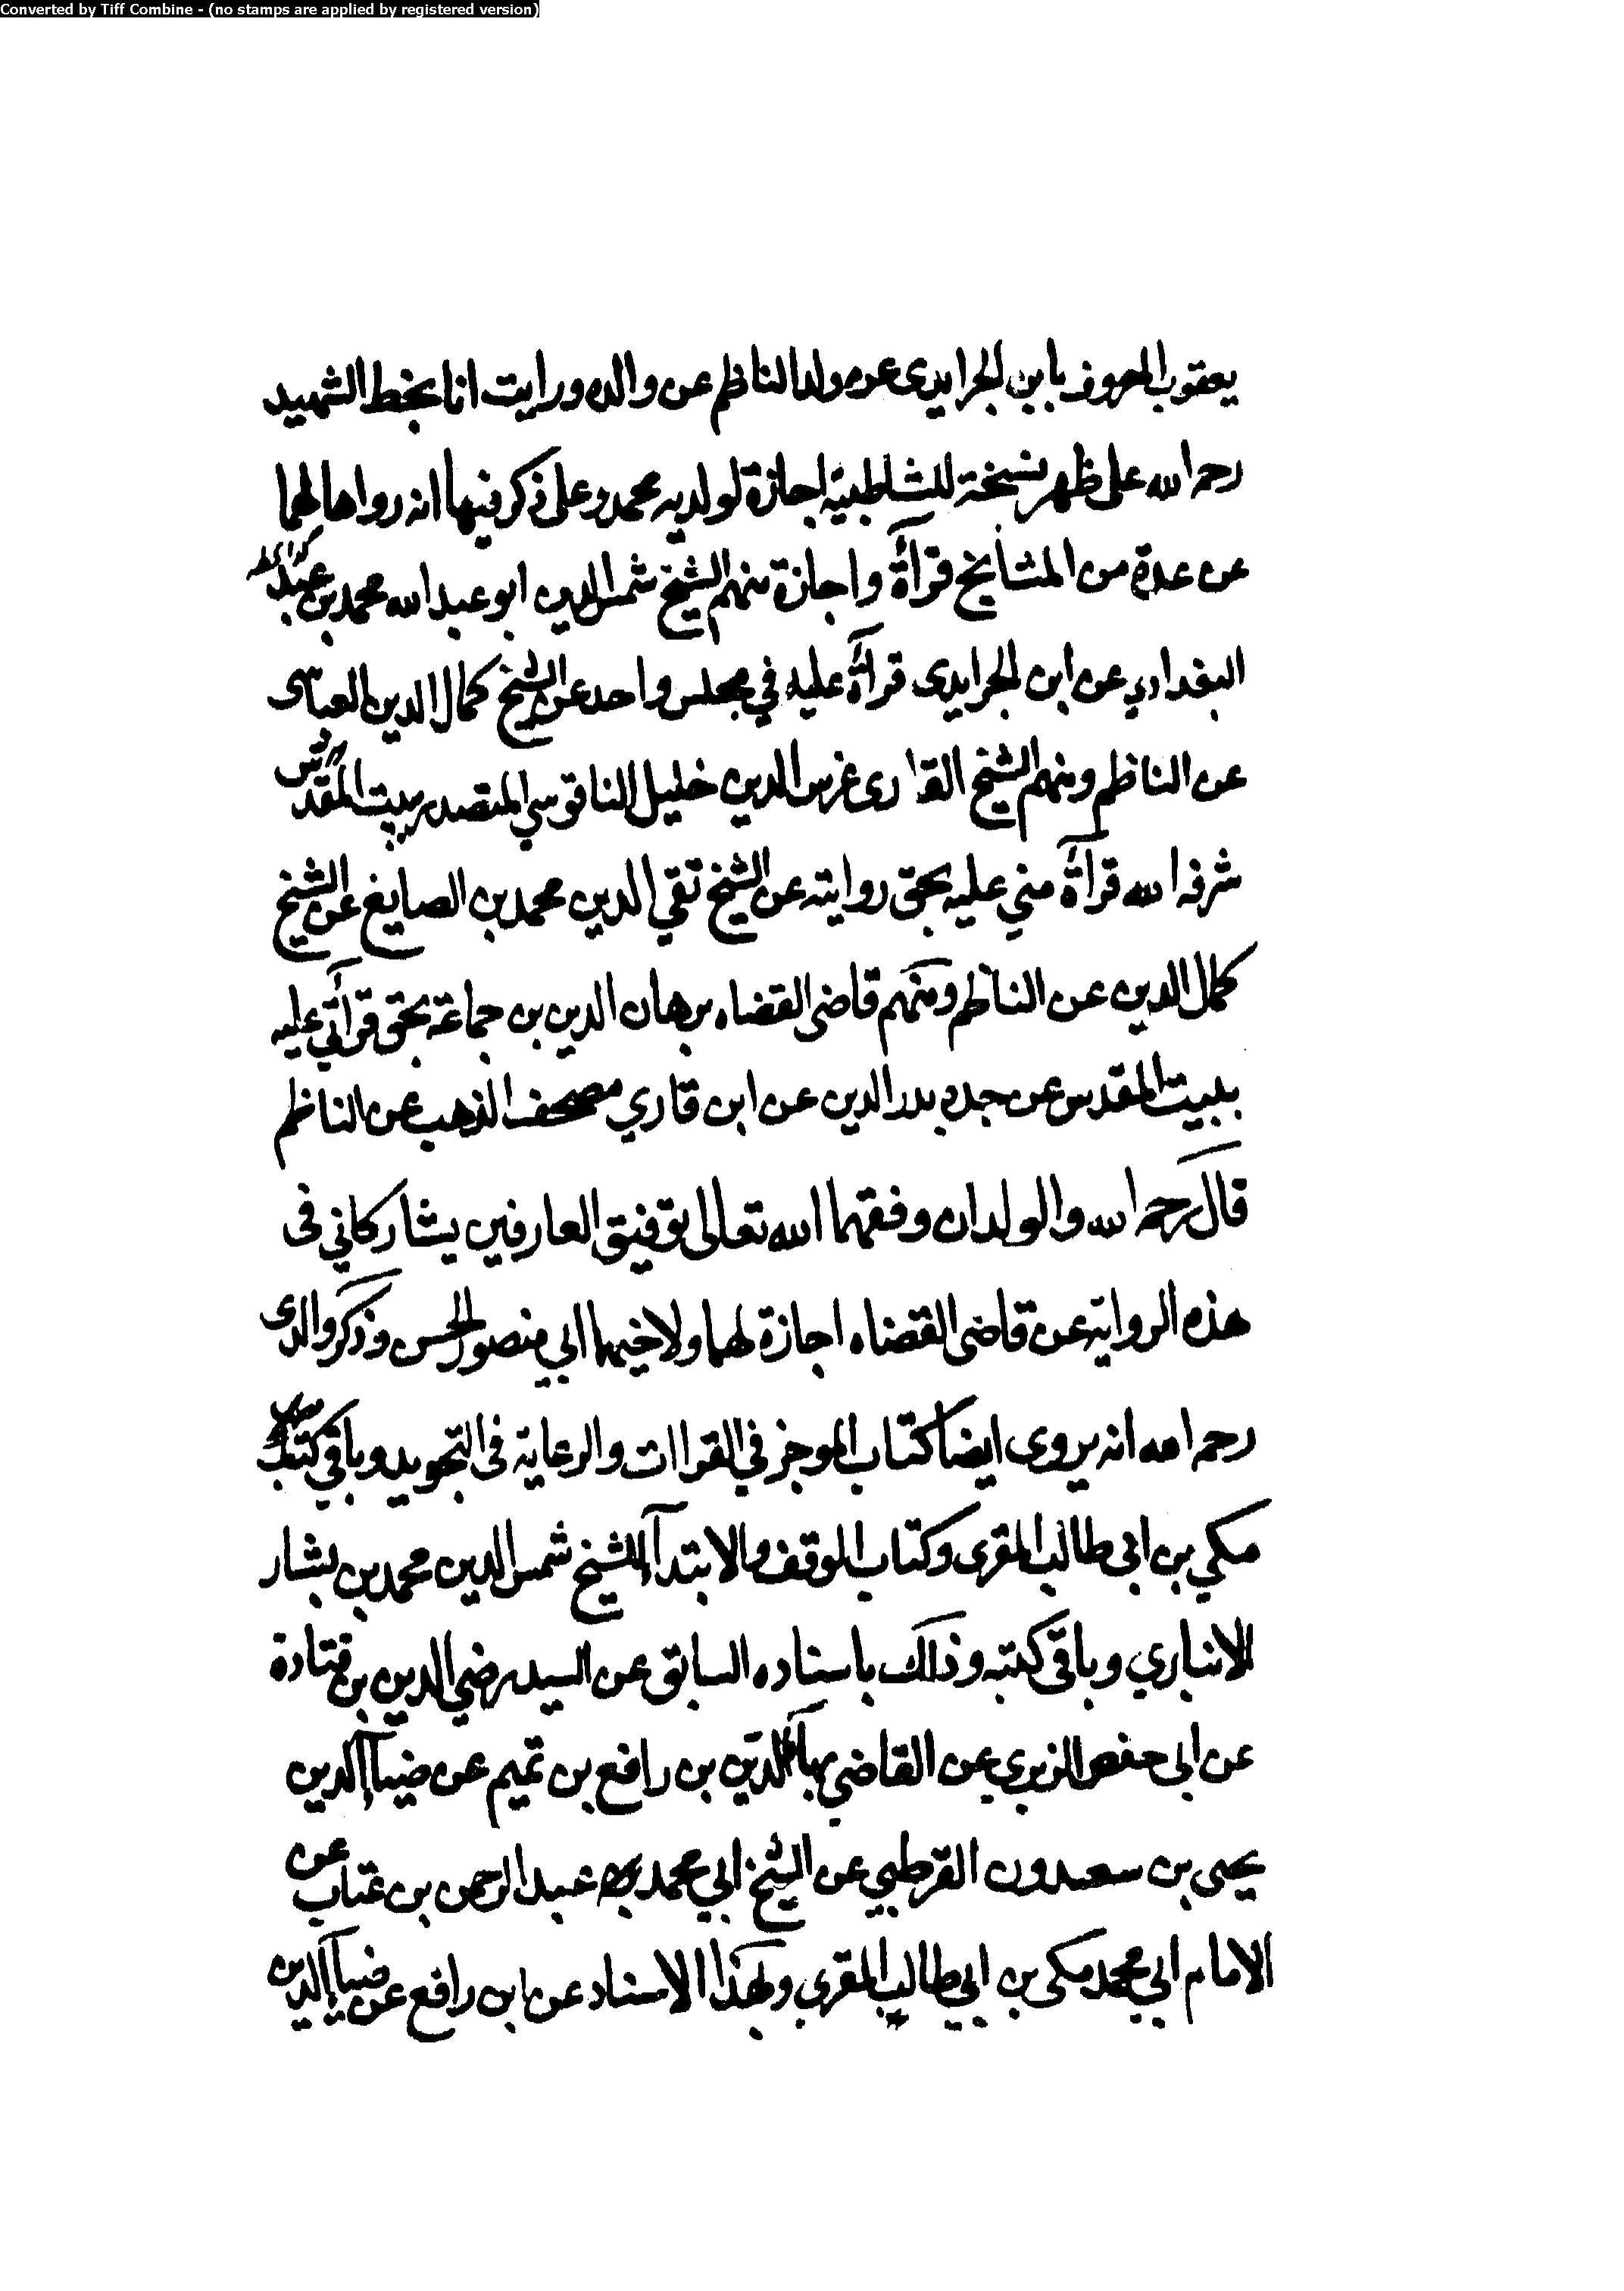 Converted by Tiff Combine - (no stamps are applied by registered version)
يعقوب المعروف بابن الجرايدى عن ولد الناظم عن والده ورايت انا بخط الشهيد
رحمه الله على ظهر نسخة للشاطبية اجازة لولديه محمد وعلى ذكر فيها انه رواها لهما
عن عدة من المشايخ قرآة واجازة منهم الشيخ شمس الدين ابو عبد الله محمد بن عبد الله
البغدادي عن ابن الجرايدى قرآة عليه في مجلس واحد عن الشيخ كمال الدين العباسى
عن الناظم ومنهم الشيخ القارى غرس الدين خليل الناقوسي المتصدر ببيت المقدس
شرفه الله قرآة مني عليه بحق روايته عن الشيخ تقي الدين محمد بن الصايغ عن الشيخ
كمال الدين عن الناظم ومنهم قاضى القضاه برهان الدين بن جماعة بحق قرآتي عليه
ببيت المقدس عن جده بدر الدين عن ابن قاري مصحف الذهب عن الناظم
قال رحمه الله والولدان وفقهما الله تعالى توفيق العارفين يشاركاني فى
هذه الرواية عن قاضى القضاه اجازة لهما ولاخيهما ابي منصور الحسن وذكر والدى
رحمه الله انه يروى ايضا كتاب الموجز في القراات والرعاية فى التجويد وباقي كتب
مكي بن ابى طالب المقرى وكتاب الوقف والابتدآ للشيخ شمس الدين محمد بن بشار
الانباري وباقى كتبه وذلك باسناده السابق عن السيد رضي الدين بن قتادة
عن ابى حفص الزبري عن القاضي بهآ الدين بن رافع بن تميم عن ضيآ الدين
يحيى بن سعدون القرطبي عن الشيخ ابي محمد عبد الرحمن بن عتاب عن
الامام ابي محمد مكى بن ابي طالب المقري وبهذا الاسناد عن ابن رافع عن ضيآ الدين